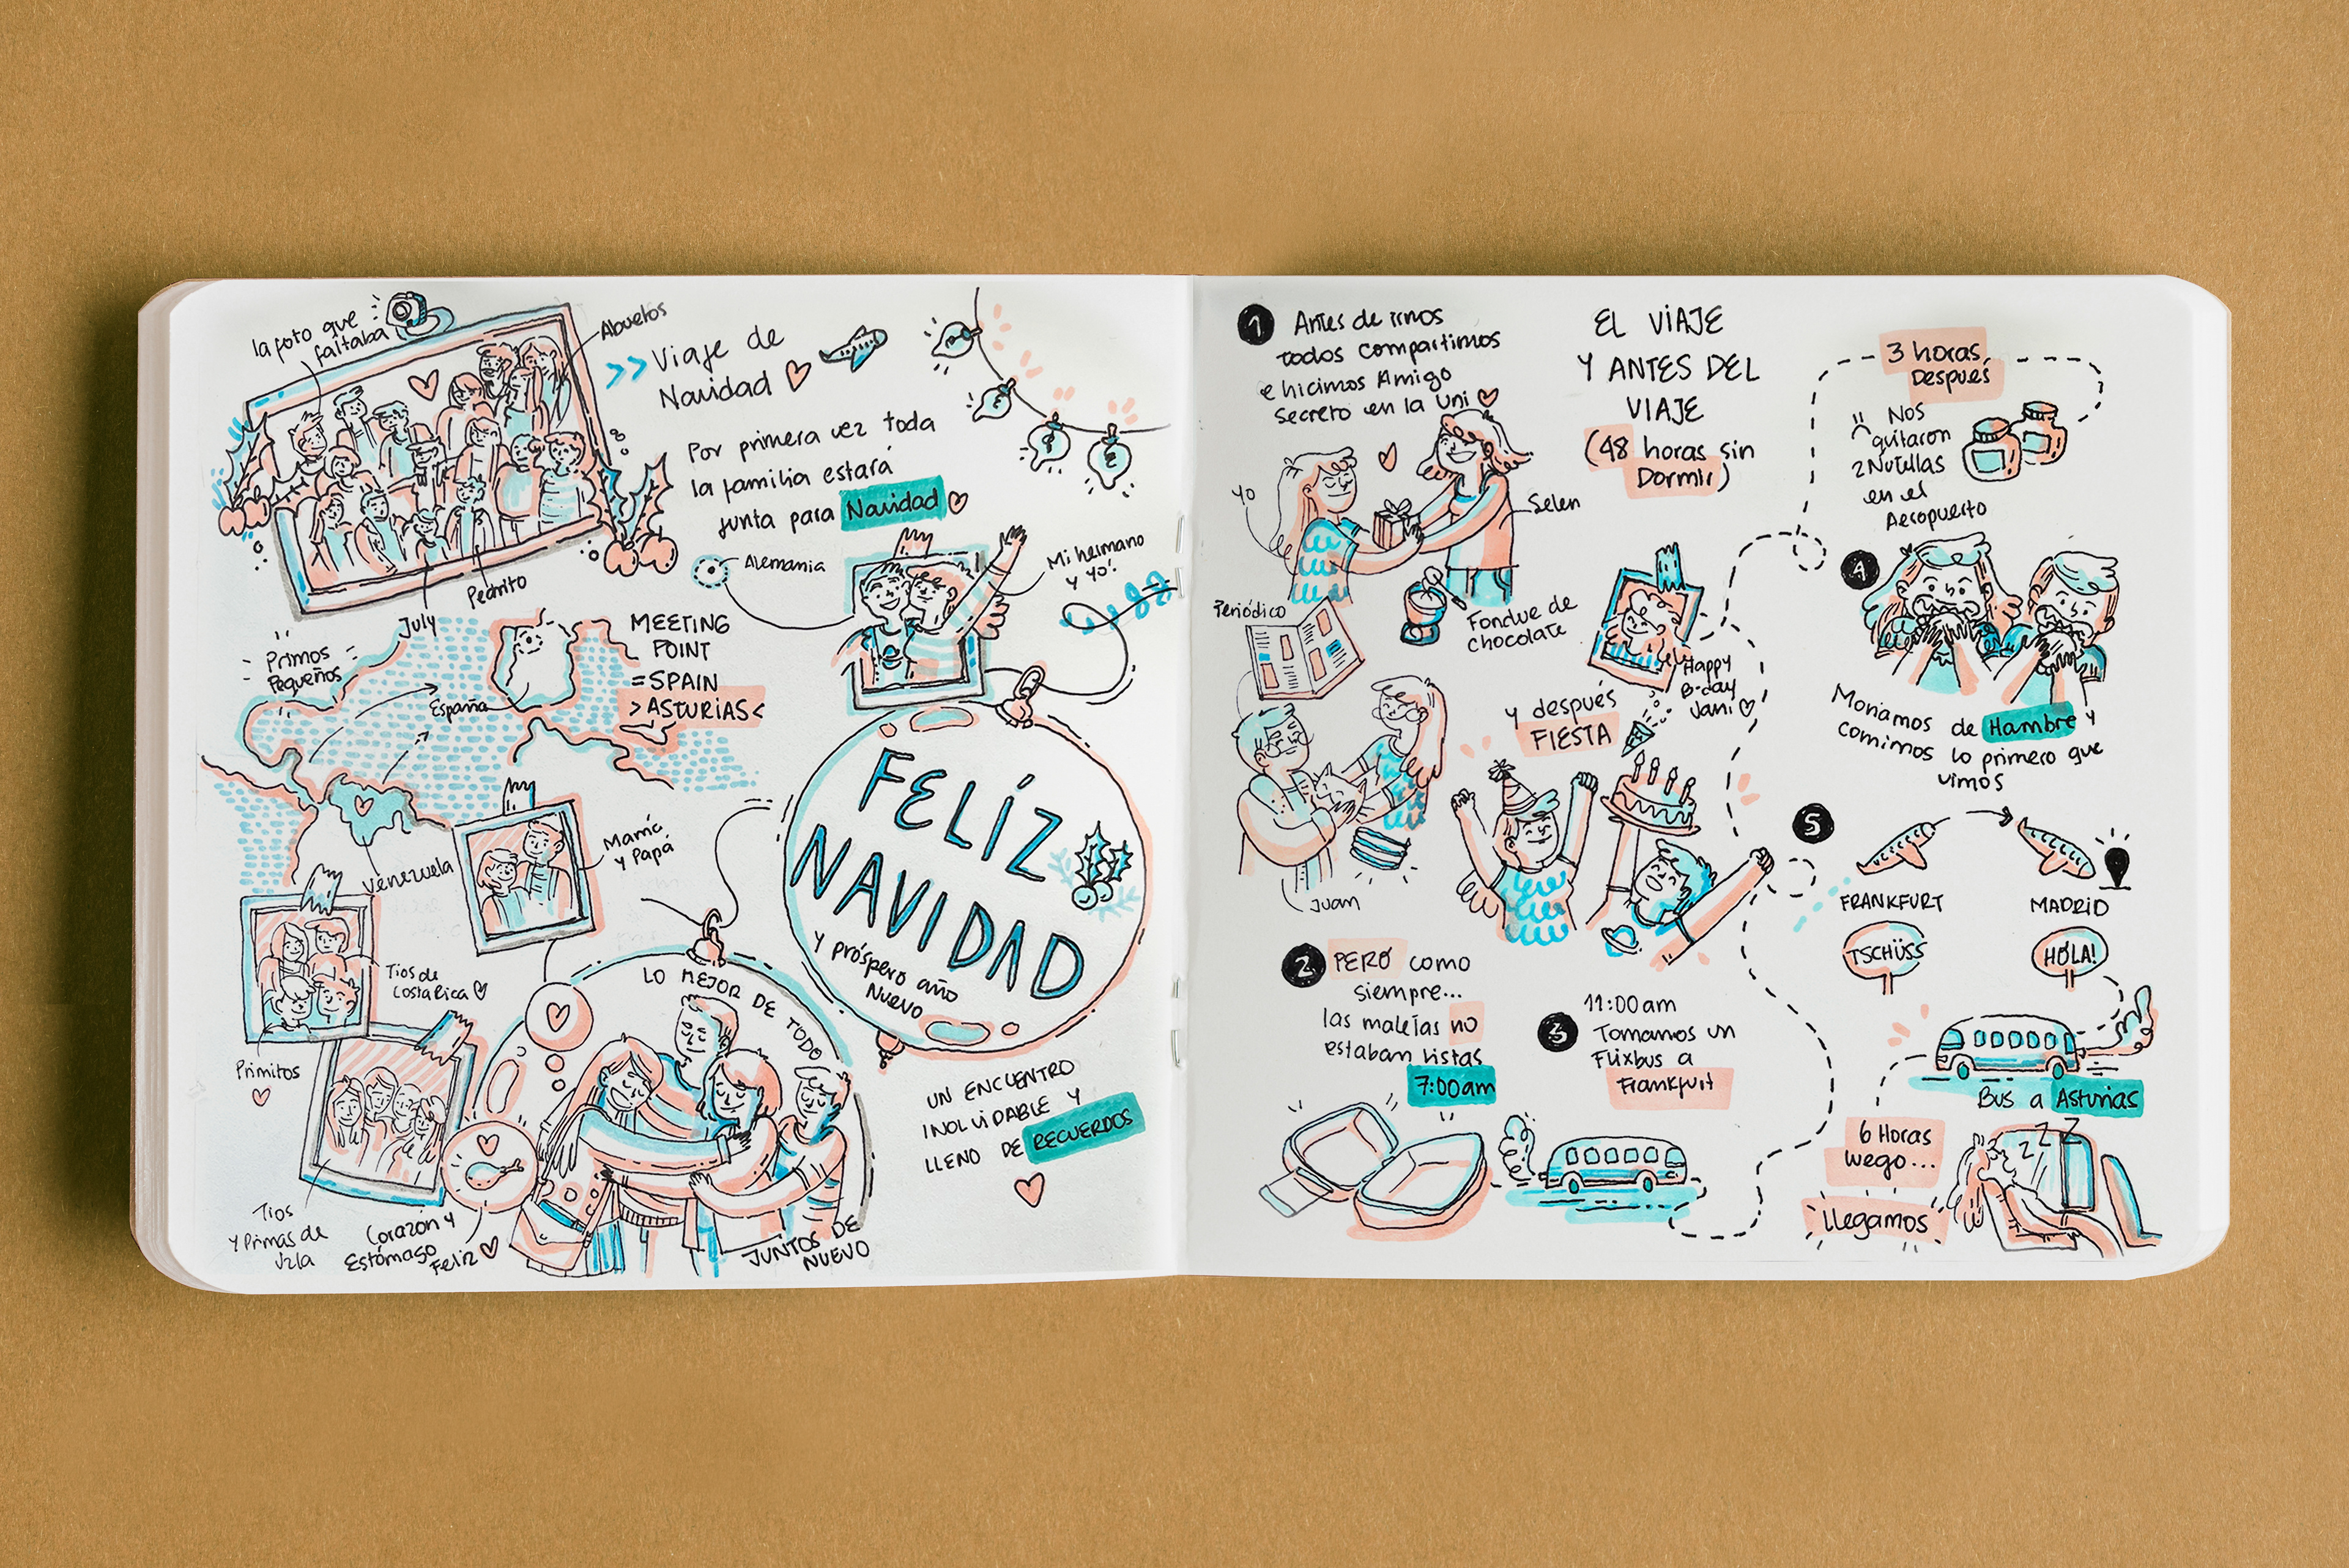 la foto que
faltaba
Abuelos
>> Viaje de
Navidad
Por primera vez toda
la familia estará
junta para Navidad
Alemania
Mi hermano
y yo!
Pedrito
July
Primos
Pequeños
España
MEETING
POINT
= SPAIN
> ASTURIAS <
Venezuela
Mamá
y Papá
Tios de
Costa Rica
Primitos
Tios
y Primas de
Vzla
Corazón y
Estómago
Feliz
LO MEJOR DE TODO
JUNTOS DE
NUEVO
FELÍZ
NAVIDAD
y próspero año
Nuevo
UN ENCUENTRO
INOLVIDABLE Y
LLENO DE RECUERDOS
1 Antes de irnos
todos compartimos
e hicimos Amigo
Secreto en la Uni
Yo
Selen
Periódico
Fondue de
chocolate
Juan
y después
FIESTA
Happy
B-day
Jani
EL VIAJE
Y ANTES DEL
VIAJE
(48 horas sin
Dormir)
2 PERO como
siempre...
las maletas no
estaban listas
7:00am
3 11:00am
Tomamos un
Flixbus a
Frankfurt
3 horas
Después
Nos
quitaron
2 Nutellas
en el
Aeropuerto
4
Moriamos de Hambre y
comimos lo primero que
vimos
5
FRANKFURT
MADRID
TSCHÜSS
HOLA!
Bus a Asturias
6 Horas
luego...
zzz
llegamos